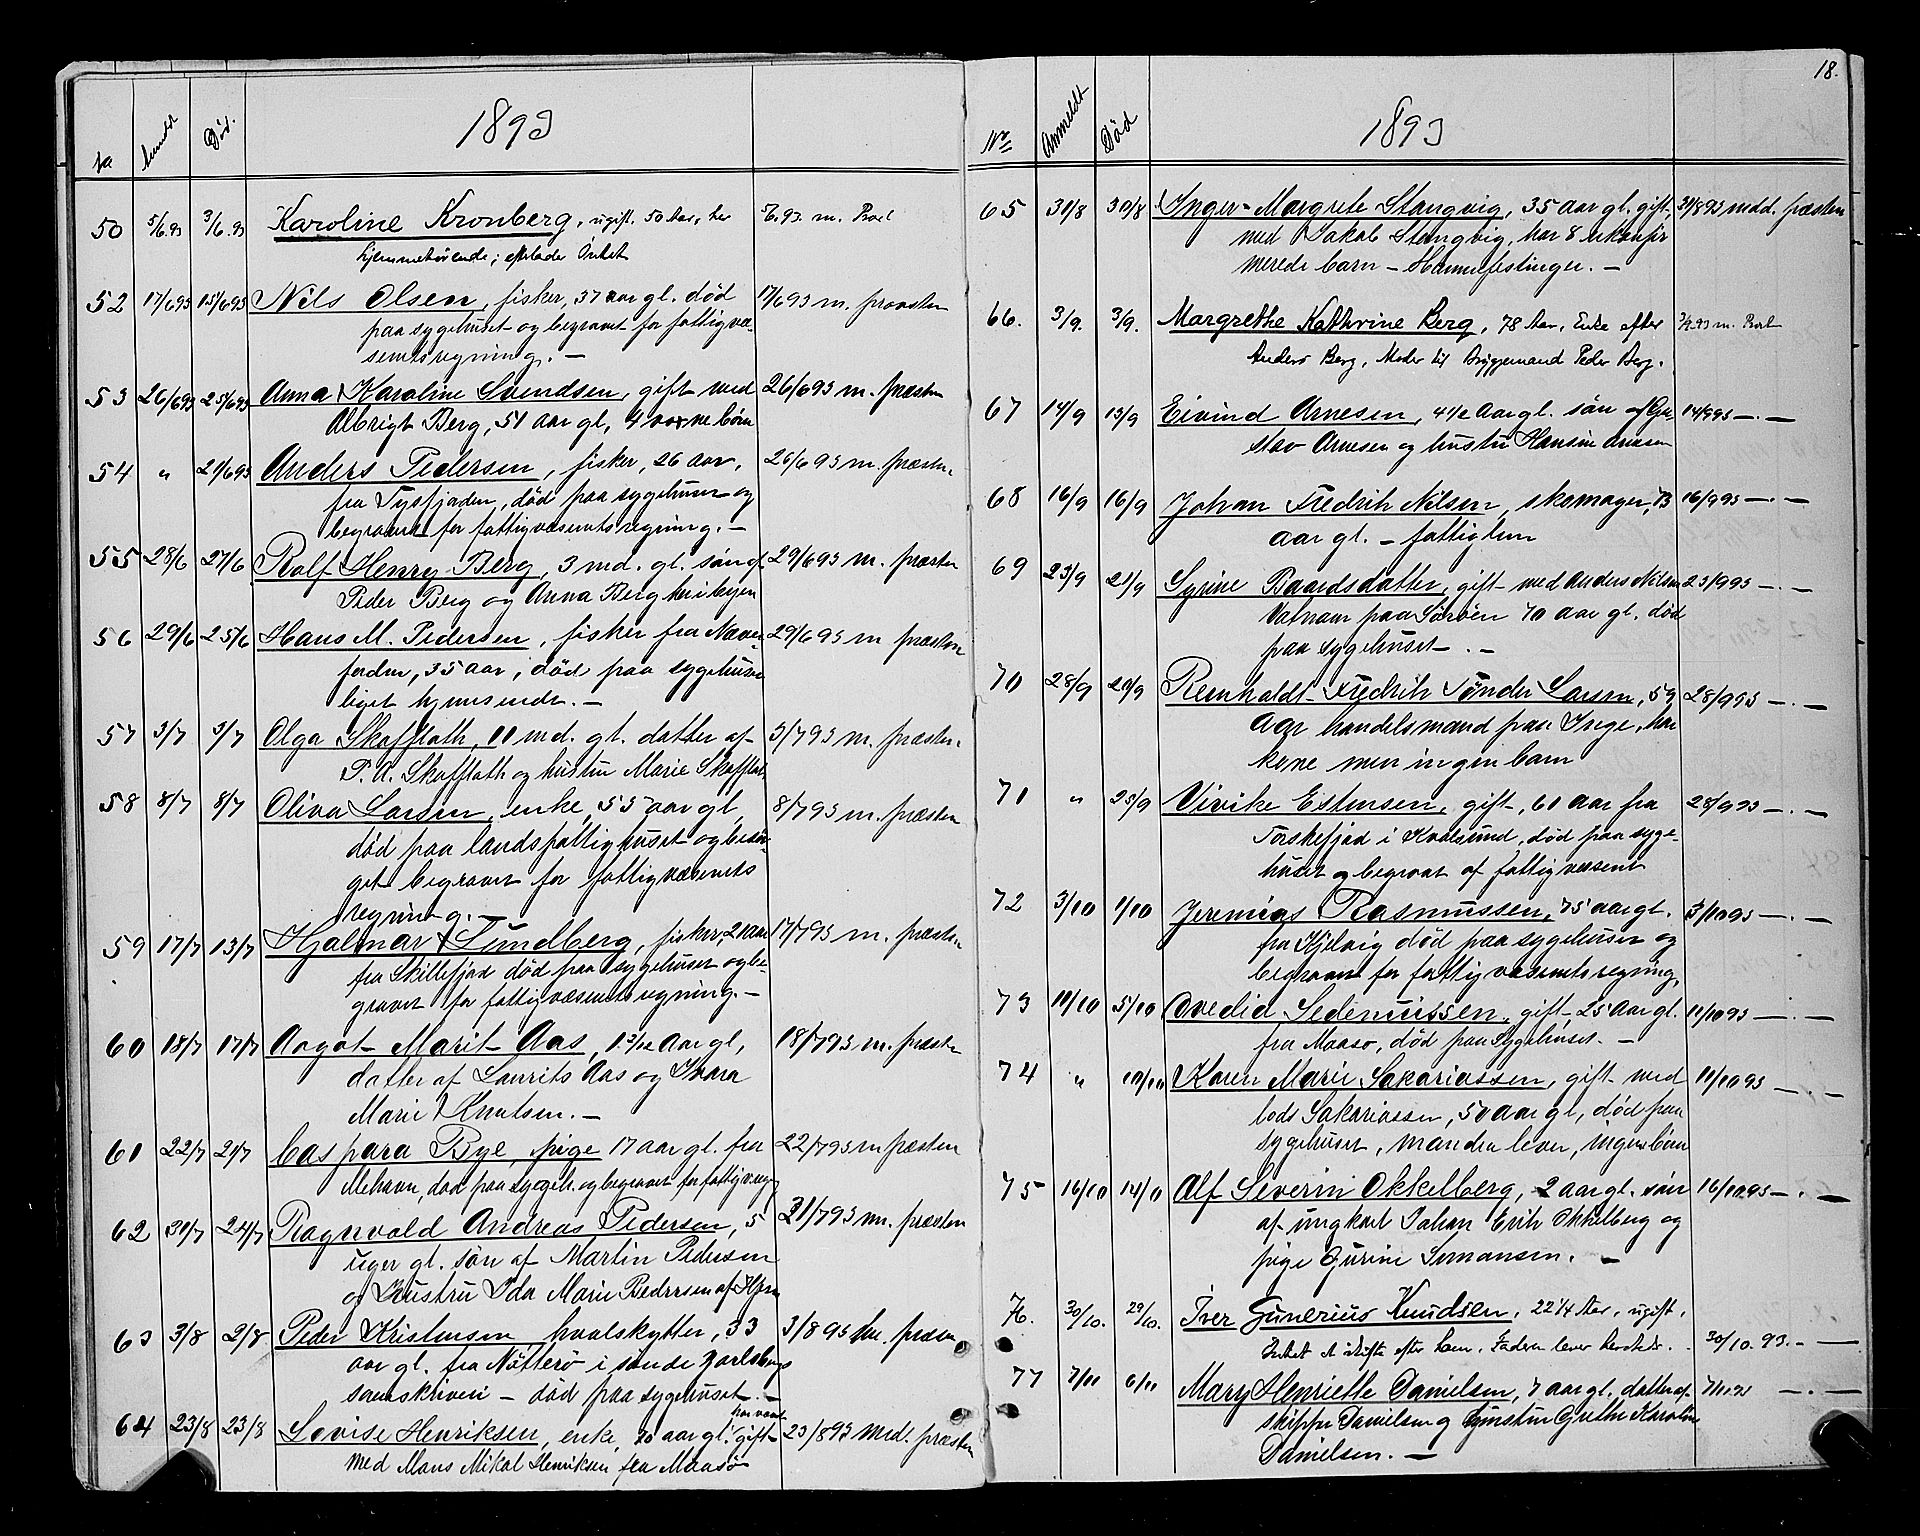 1893
No Anmeldt Død.
50 5/6.93 3/6.93 Karoline Kronberg, ugift. 50 Aar, her 5/6.93. m.
hjemmehørende; efterlader Intet
52 17/693 15/693 Nils Olsen, fisker, 37 aar gl. død 17/693 m. præsten
paa sygehuset og begravet for fattigvæ-
senets regning. —
53 26/693 25/693 Anna Karoline Svendsen, gift med 26/693 m. præsten
Albrigt Berg, 51 aar gl, 4 voxne børn
54 " 21/693 Anders Pedersen, fisker, 26 aar, 26/693 m. præsten
fra Tysfjorden, død paa sygehuset og
begravet for fattigvæsenets regning. —
55 28/6 27/6 Rolf Henry Berg, 3 md. gl. søn af 29/693 m. præsten
Peder Berg og Anna Berg her i byen
56 29/6 25/6 Hans M. Pedersen, fisker fra 29/693 m præsten
35 aar, død paa sygehuset
liget hjemsendt. —
57 3/7 3/7 Olga Skoffloth, 11 md. gl. datter af 3/793 m. præsten
P. A. Skoffloth og hustru Marie Skoffloth
58 8/7 8/7 Oliva Larsen, enke, 55 aar gl, 8/793 m. præsten
død paa landsfattighuset og besør-
get begravet for fattigvæsenets
regning. —
59 17/7 13/7 Hjalmar Lundberg, fisker, 21 aar 17/793 m. præsten
fra Skillefjord død paa sygehuset og be-
gravet for fattigvæsenets regning. —
60 18/7 17/7 Aagot Marit Aas, 1 3/12 aar gl, 18/793 m. præsten
datter af Laurits Aas og
Marie Knutsen. —
61 22/7 21/7 Caspara Bye, pige 17 aar gl. fra 22/793 m præsten
Mehavn, død paa sygeh. og begravet for fattigv. regn
62 31/7 24/7 Ragnvald Andreas Pedersen, 5 31/793 m. præsten
uger gl. søn af Martin Pedersen
og Hustru Ida Marie Pedersen af
63 3/8 2/8 Peder Kristensen hvalskytter, 33 3/893 m. præsten
aar gl. fra Nøtterø i søndre Jarlsbergs
sorenskriveri — død paa sygehuset. —
64 23/8 23/8 Lovise Henriksen, enke, 70 aar gl. har været gift 23/893 med. præsten
med Mons Mikal Henriksen fra Maasø
18.
1893
No Anmeldt Død
65 31/8 30/8 Inger-Margrete Stangvig, 35 aar gl. gift 31/893 medd. præsten
med Jakob Stangvig, har 8 ukonfir
merede barn — Hammerfestinger. —
66. 3/9. 3/9. Margrethe Kathrine Berg, 78 Aar, Enke efter 3/9.93 m.
Anders Berg, Moder til Bryggemand Peder Berg.
67 14/9 13/9 Eivind Arnesen, 4 1/2 aar gl. søn af Gu- 14/993 —.—
stav Arnesen og hustru Hansine Arnesen
68 16/9 16/9 Johan Fredrik Nilsen, skomager, 16/993 —.—
aar gl. — fattiglem
69 23/9 21/9 Syrine Baardsdatter, gift med Anders Nilsen 23/993 —.—
Vatnavn paa Sørøen 70 aar gl. død
paa sygehuset —.—
70 28/9 20/9 Reinholdt Fredrik Tønder Larsen, 59 28/993 —.—
aar handelsmand paa Ingø, har
kone men ingen barn
71 " 25/9 Vivike Estensen, gift, 61 aar fra 28/993 —.—
Torskefjord i Kvalsund, død paa syge-
huset og begravet af fattigvæsenet
72 3/10 1/10 Jeremias Rasmussen, 75 aar gl. 3/1093 —.—
fra Kjelvig død paa sygehuset og
begravet for fattigvæsenets regning,
73 11/10 5/10 Ovedid Sedemissen, gift 25 aar gl. 11/1093 —.—
fra Maasø, død paa Sygehuset. —
74 " 10/10 Karen Marie Sakariassen, gift med 11/1093 —.—
Sakariassen, 50 aar gl, død paa
sygehuset, manden lever, ingen børn
75 16/10 14/10 Alf Severin Okkelberg, 2 aar gl. søn 16/1093 —.—
af ungkarl Johan Erik Okkelberg og
pige Gurine Simonsen. —
76. 30/10. 29/10. Iver Gunerius Knudsen, 22 1/4 Aar, ugift,
Intet at skifte efter ham. Faderen lever herstedet. 30/10.93. —.—
77 7/11 6/11 Mary Henriette Danielsen, 7 aar gl. datter af 7/1193 —.—
skipper Danielsen og hustru Grethe Karoline
Danielsen. —